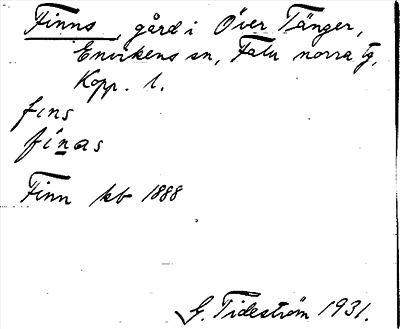 Finns, gård i Över Tänger,
Envikens sn, Falu norra tg,
Kopp. l.
fins
finas
Finn kb 1888
G. Tideström 1931.